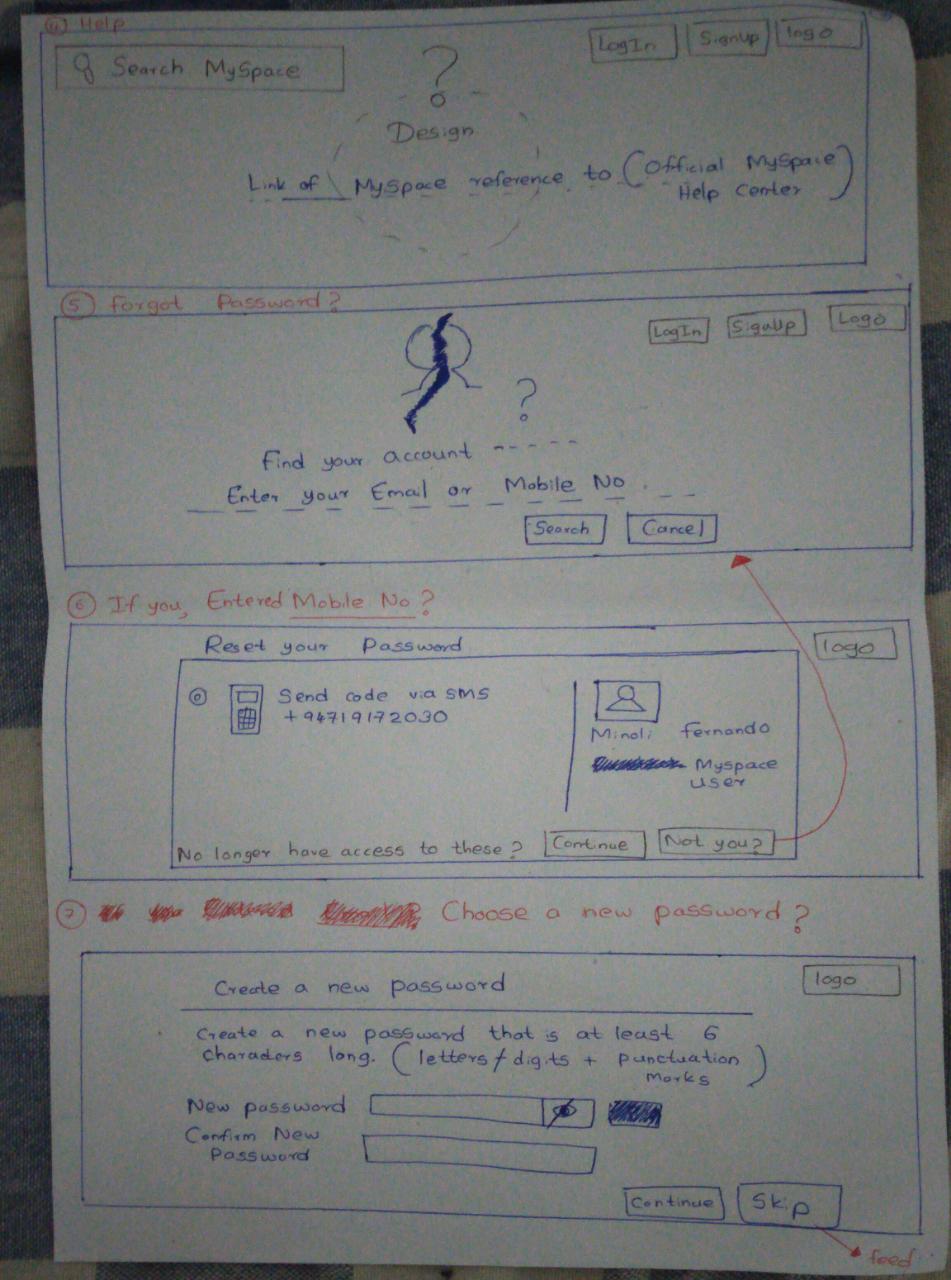 ④ Help
Search MySpace
LogIn SignUp logo
?
Design
Link of MySpace reference to (Official MySpace
Help Center)
⑤ Forgot Password?
LogIn SignUp Logo
?
Find your account -----
Enter your Email or Mobile No
Search Cancel
⑥ If you, Entered Mobile No?
Reset your Password
logo
Send code via SMS
+94719172030
Minoli Fernando
Myspace
user
No longer have access to these? Continue Not you?
⑦ Choose a new password?
Create a new password
logo
Create a new password that is at least 6
charaders long. (letters/digits + punctuation
marks)
New password
Confirm New
Password
Continue Skip
feed